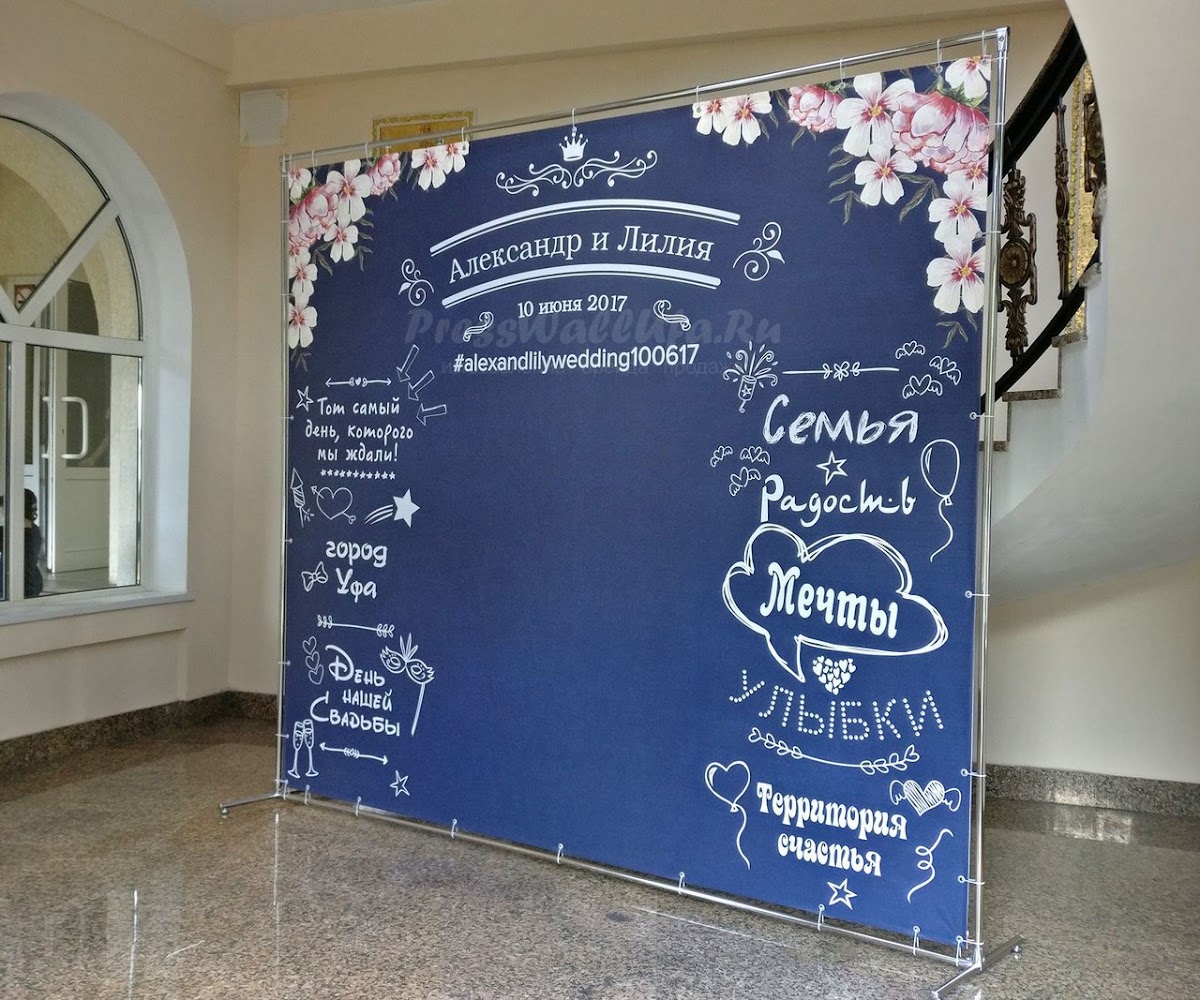 Александр и Лилия
10 июня 2017
PressWallUfa.Ru
#alexandlilywedding100617
Тот самый
день, которого
мы ждали!
город
Уфа
День
нашей
Свадьбы
Семья
Радость
Мечты
УЛЫБКИ
Территория
счастья